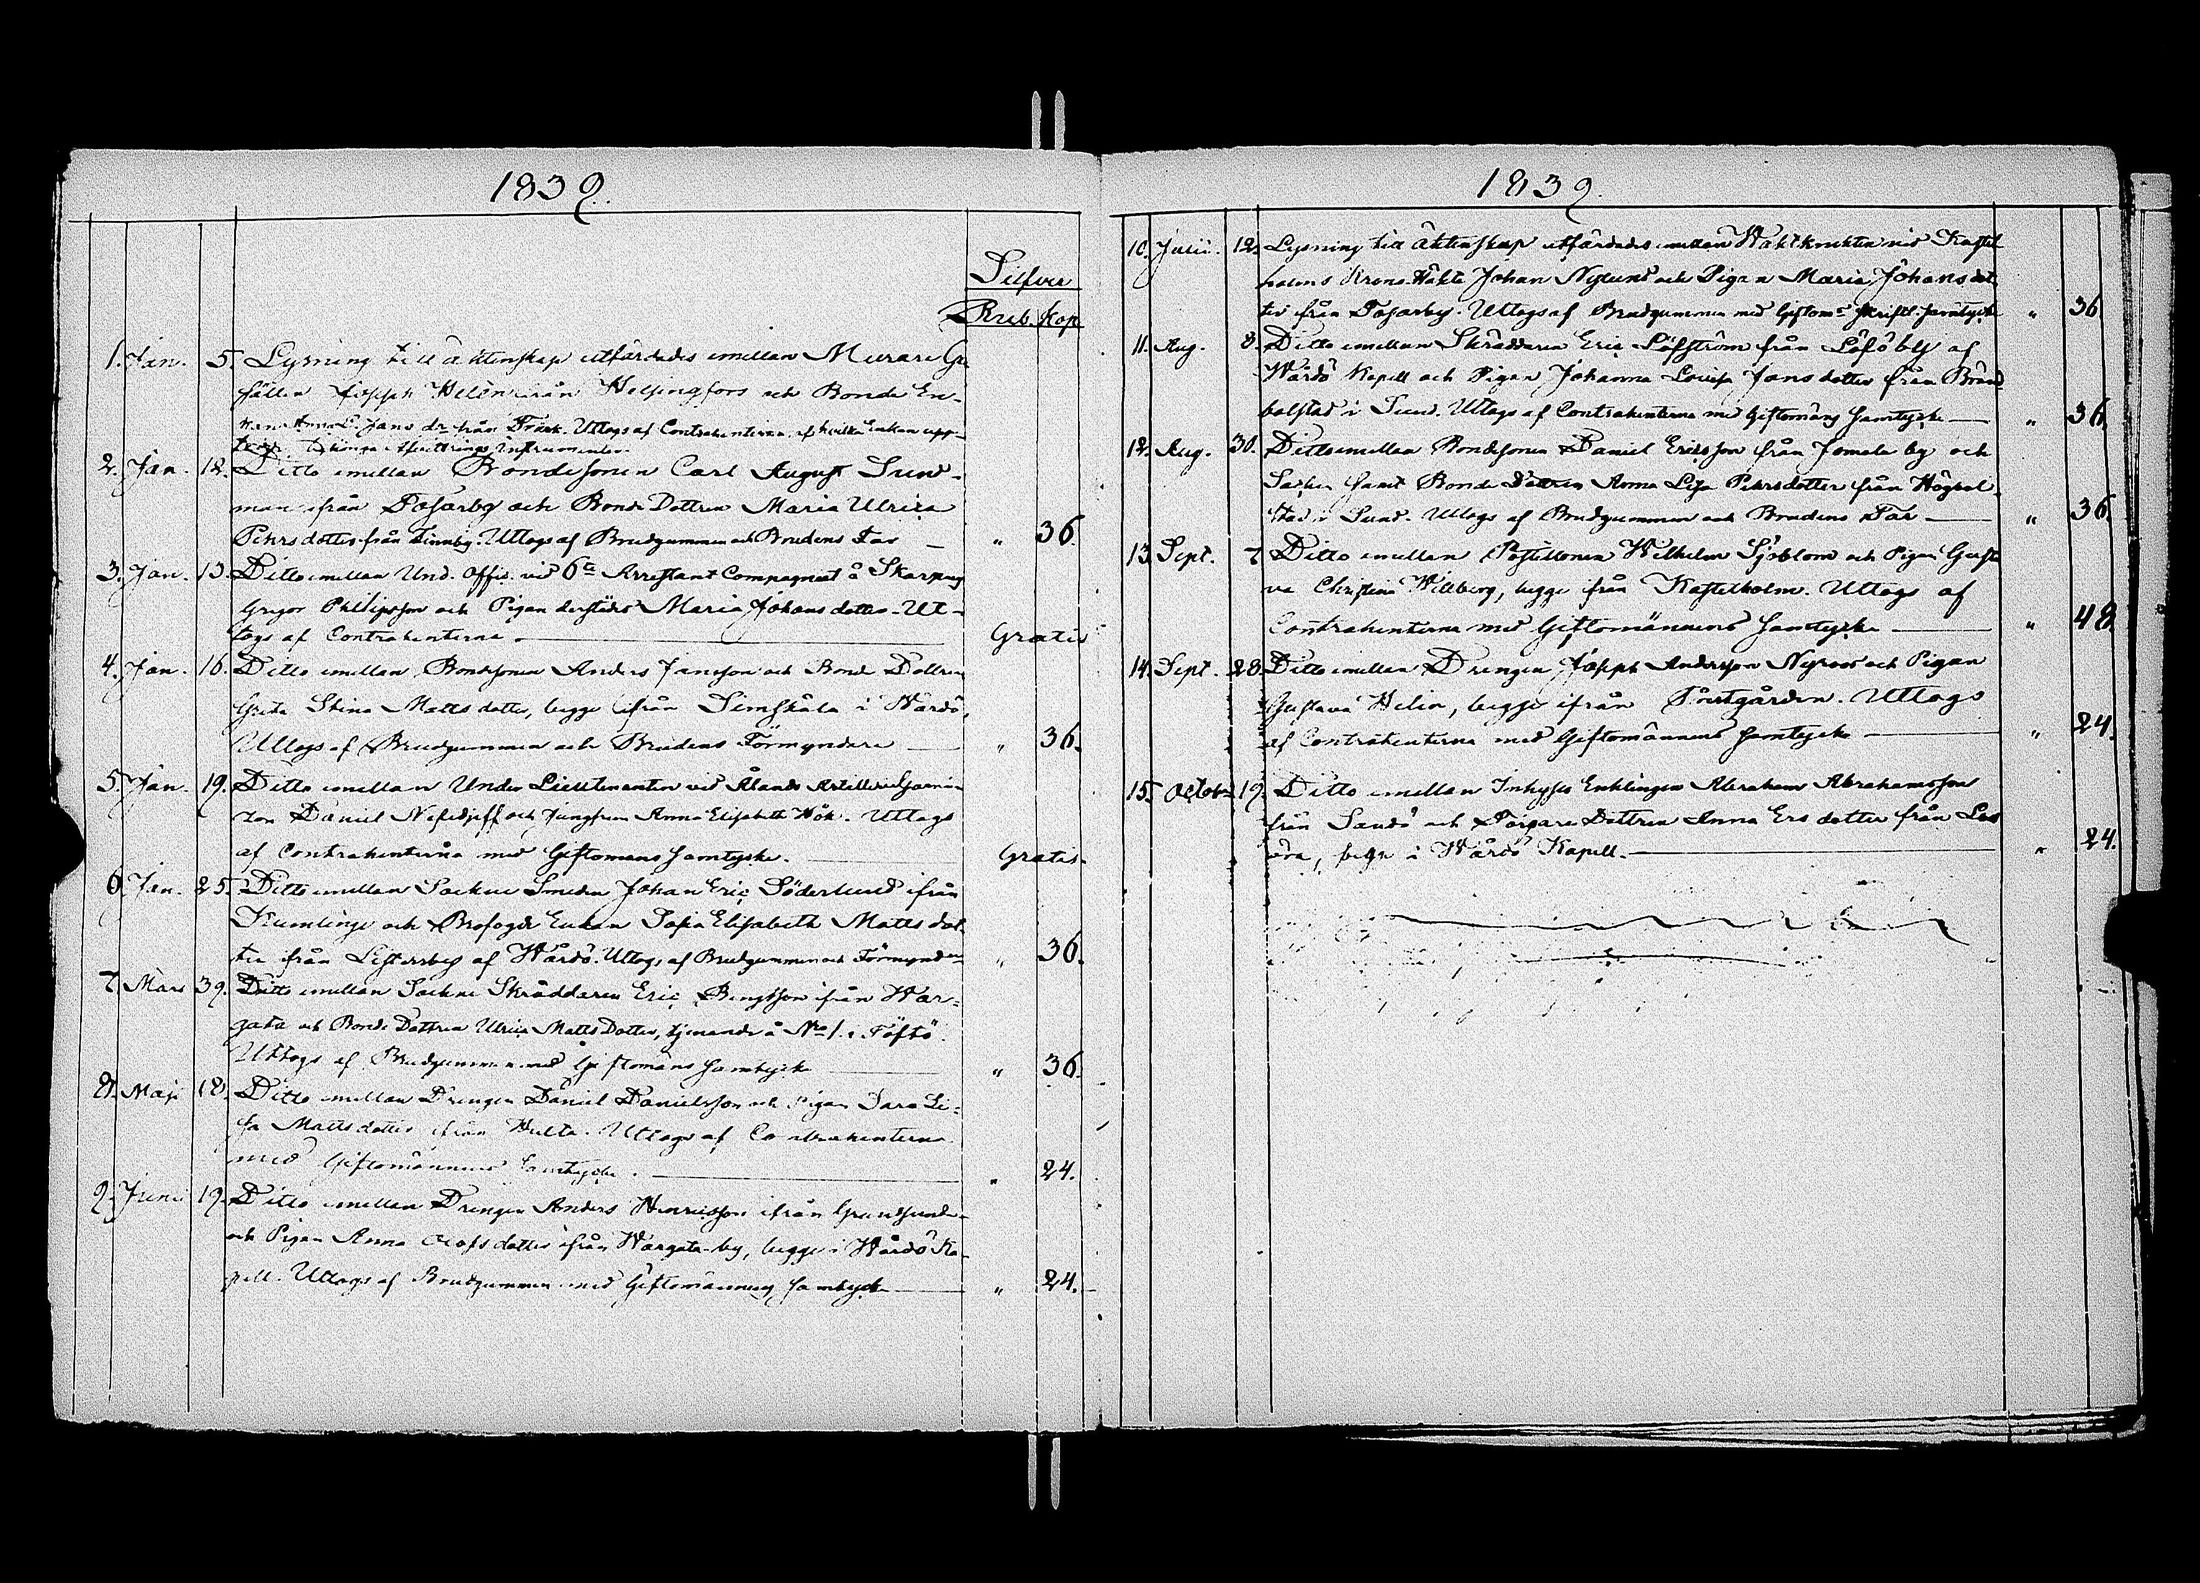 1839.
Silfver
Rub. Kop.
1. Jan. 5. Lysning till äktenskap utfärdades emellan Murare Ge
sällen Joseph Helén från Helsingfors och Bonde En-
kan Anna L. Jans dr från Tränk. Uttogs af Contrahenterna, af hvilka Enkan upp-
Afvittrings Instrumenter.
2. Jan. 12. Ditto emellan Bondesonen Carl August Sund-
man ifrån Tosarby och Bonde Dottren Maria Ulrica
Pehrsdotter från Finnby. Uttogs af Brudgummen och Brudens Far — „ 36.
3. Jan. 13. Ditto emellan Und. Offic. vid 6te Arrestant Compagniet å Skarpans
Gregor Philipsson och Pigan derstädes Maria Johansdotter. Ut-
togs af Contrahenterna. — Gratis
4. Jan. 16. Ditto emellan Bondesonen Anders Jansson och Bonde Dottren
Greta Stina Mattsdotter, begge ifrån Simskäla i Wårdö,
Uttogs af Brudgummen och Brudens Förmyndare — „ 36.
5. Jan. 19. Ditto emellan Under Lieutenanten vid Ålands Artillerie Garni-
zon Daniel Nefedjeff och Jungfrun Anna Elisabeth Hök. Uttogs
af Contrahenterna med Giftomans samtycke. — Gratis.
6. Jan. 25. Ditto emellan Sockne Smeden Johan Eric Söderlund ifrån
Kumlinge och Brofogde Enkan Sofia Elisabeth Mattsdot
ter ifrån Listersby af Wårdö. Uttogs af Brudgummen och Förmyndaren „ 36.
7. Mars 39. Ditto emellan Sockne Skräddaren Eric Bengtsson ifrån War-
gata och Bonde Dottren Ulrica Matts Dotter, tjenande å No 1. i Töftö.
Uttogs af Brudgummen med Giftomans samtycke — „ 36.
8. Maji 18. Ditto emellan Drengen Daniel Danielsson och Pigan Sara Li-
sa Mattsdotter ifrån Hulta. Uttogs af Contrahenterna
med Giftomännens samtycke. — „ 24.
9. Junii 19. Ditto emellan Drengen Anders Henricsson ifrån Grundsunda
och Pigan Anna Olofsdotter ifrån Wargata by, begge i Wårdö Ka-
pell. Uttogs af Brudgummen med Giftomannens samtycke — „ 24.
1839.
10. Julii. 12. Lysning till äktenskap utfärdades emellan Waktknekten vid Kastel
holms Krono Häkte Johan Nylund och Pigan Maria Johansdot
ter från Tosarby. Uttogs af Brudgummen med Giftoms skriftl. samtycke „ 36
11. Aug. 8. Ditto emellan Skräddaren Eric Löfström från Löfö by af
Wårdö Kapell och Pigan Johanna Lovisa Jansdotter från Bränd
bolstad i Sund. Uttogs af Contrahenterna med Giftomans samtycke — „ 36.
12. Aug. 30. Ditto emellan Bondsonen Daniel Ericsson från Jomala by och
Socken samt Bonde Dottren Anna Lisa Pehrsdotter från Högbol-
stad i Sund. Uttogs af Brudgummen och Brudens Far — „ 36.
13. Sept. 7 Ditto emellan Postillonen Wilhelm Sjöblom och Pigan Gusta
va Christina Willberg, begge ifrån Kastelholm. Uttogs af
Contrahenterna med Giftomännens samtycke — „ 48
14. Sept. 28. Ditto emellan Drengen Joseph Andersson Nyroos och Pigan
Gustava Helin, begge ifrån Prestgården. Uttogs
af Contrahenterna med Giftomännens samtycke — „ 24.
15. Octob. 19. Ditto emellan Inhyses Enklingen Abraham Abrahamsson
från Sandö och Torpare Dottren Anna Ersdotter från
begge i Wårdö Kapell. — „ 24.